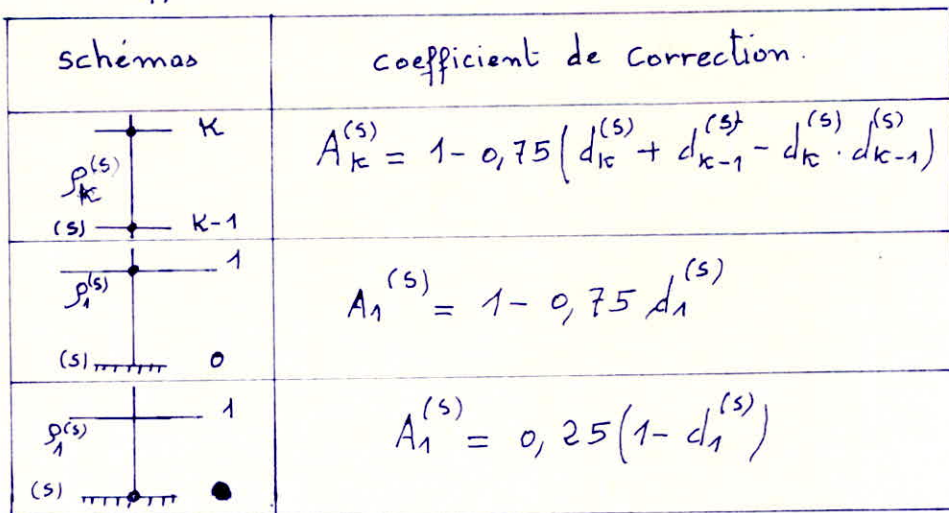 schémas
coefficient de correction.
K
ρ_K^(s)
(s) K-1
A_K^(s) = 1 - 0,75 (d_K^(s) + d_K-1^(s) - d_K^(s) . d_K-1^(s))
1
ρ_1^(s)
(s) 0
A_1^(s) = 1 - 0,75 d_1^(s)
1
ρ_1^(s)
(s)
A_1^(s) = 0,25 (1 - d_1^(s))